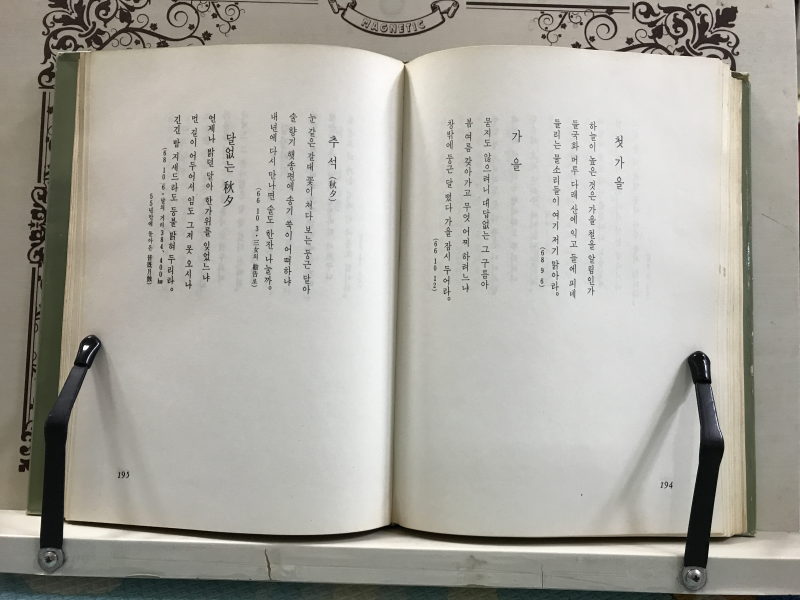 MAGNETIC
첫가을
하늘이 높은 것은 가을 철을 알림인가
들국화 머루 다래 산에 익고 들에 피네
들리는 물소리들이 여기 저기 맑아라。
(68 9 8)
가을
묻지도 않으려니 대답없는 그 구름아
봄 여름 갖아가고 무엇 어찌 하려느냐
창밖에 둥근 달 떴다 가을 잠시 두어라。
(66 10 12)
194
추석 (秋夕)
눈 같은 갈대 꽃이 쳐다 보는 둥근 달아
술 향기 햇송편에 송기 쪽이 어떠하냐
내년에 다시 만나면 술도 한잔 나눌까。
(66 10 3·三女의
달없는 秋夕
언제나 밝던 달아 한가위를 잊었느냐
먼 길이 어두어서 임도 그저 못 오시나
긴긴 밤 지새드라도 등불 밝혀 두리라。
(68 10 6·달의 거리 384, 400㎞
55년만에 돌아온
195